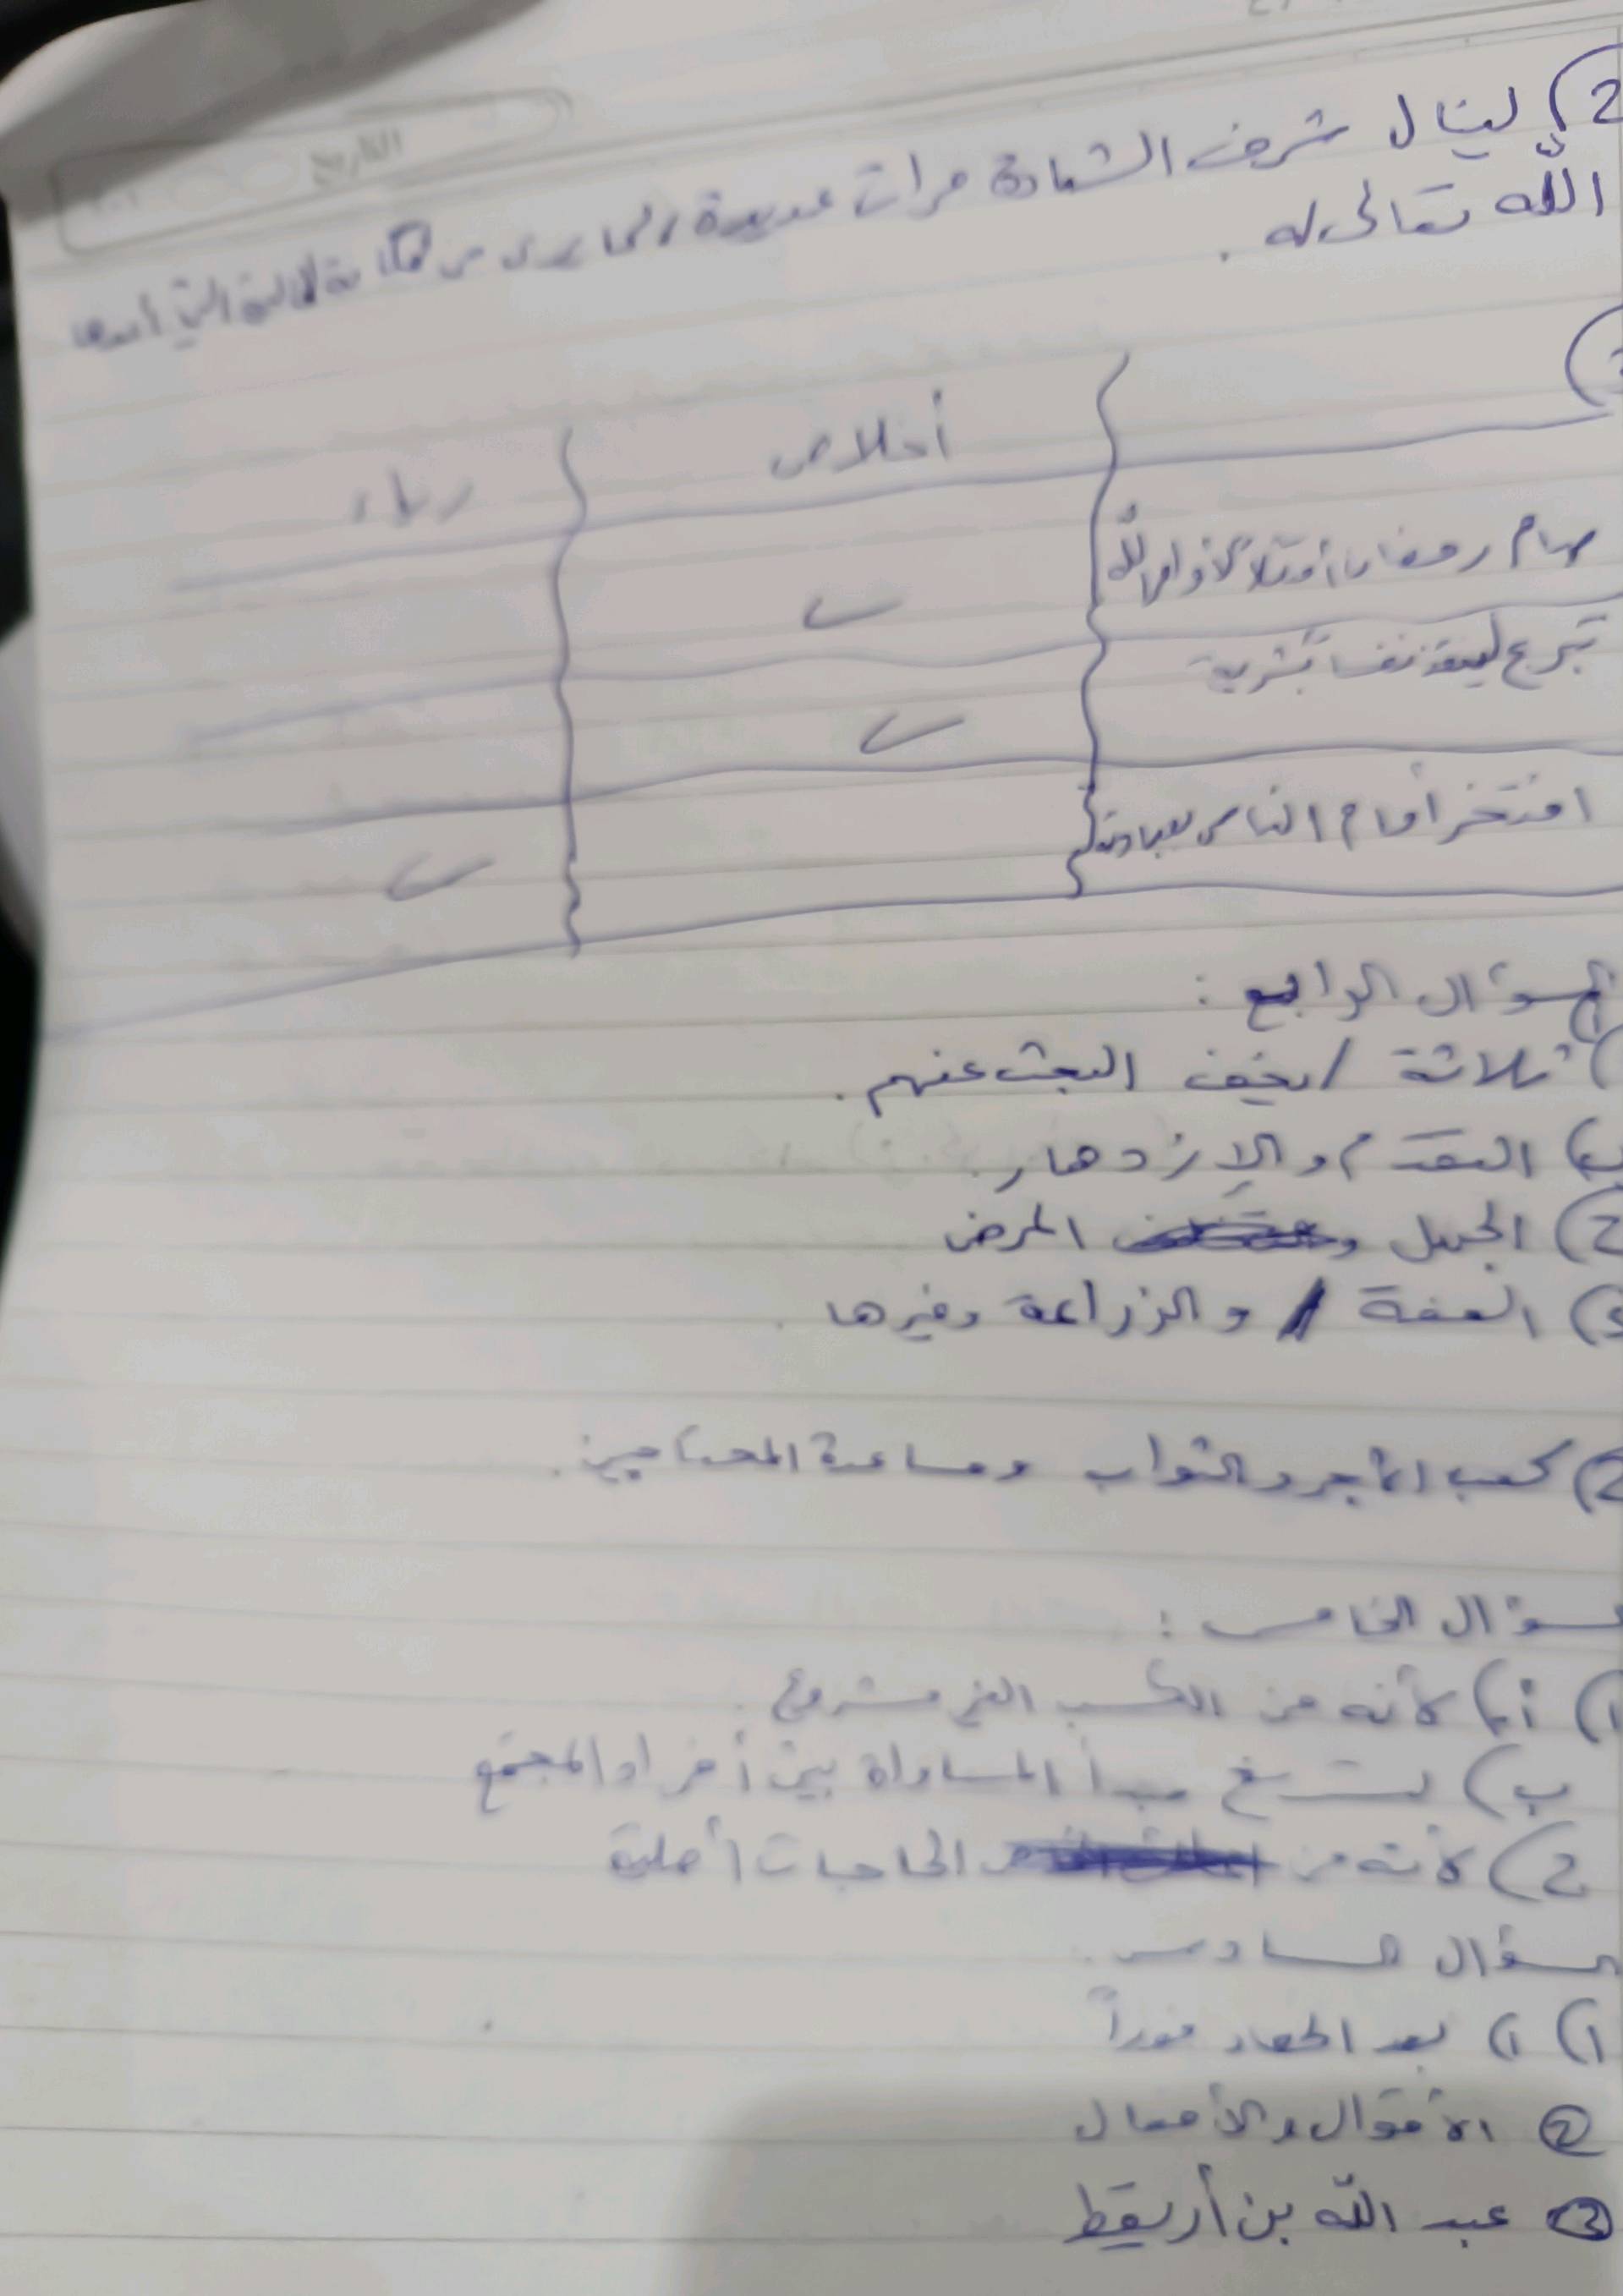 2) لينال شرف الشهادة مرات عديدة لما يرى من المكانة العالية التي أعدها
الله تعالى له .
أخلاص رياء
صيام رمضان امتثالاً لأوامر الله
تبرع لينقذ نفسا بشرية
افتخر أمام الناس بعبادته
السؤال الرابع :
ثلاثة / يخف البحث عنهم .
ب) التقدم والإزدهار .
2) الجهل المرض
3) العفة والزراعة وغيرها .
2) كسب الأجر والثواب ومساعدة المحتاجين .
السؤال الخامس :
1) أ) لأنه من الكسب الغير مشروع .
ب) ترسيخ مبدأ المساواة بين أفراد المجتمع
2) لأنه من الحاجات أصلية
السؤال السادس .
1) 1) بعد الحصاد فوراً
2 الأقوال والأفعال
3 عبد الله بن أريقط